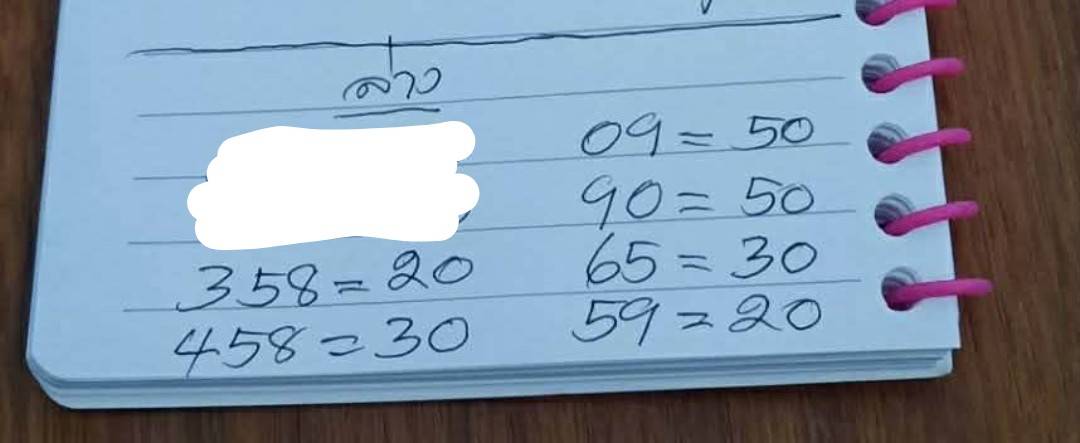 ล่าง
09 = 50
90 = 50
358 = 20 65 = 30
458 = 30 59 = 20